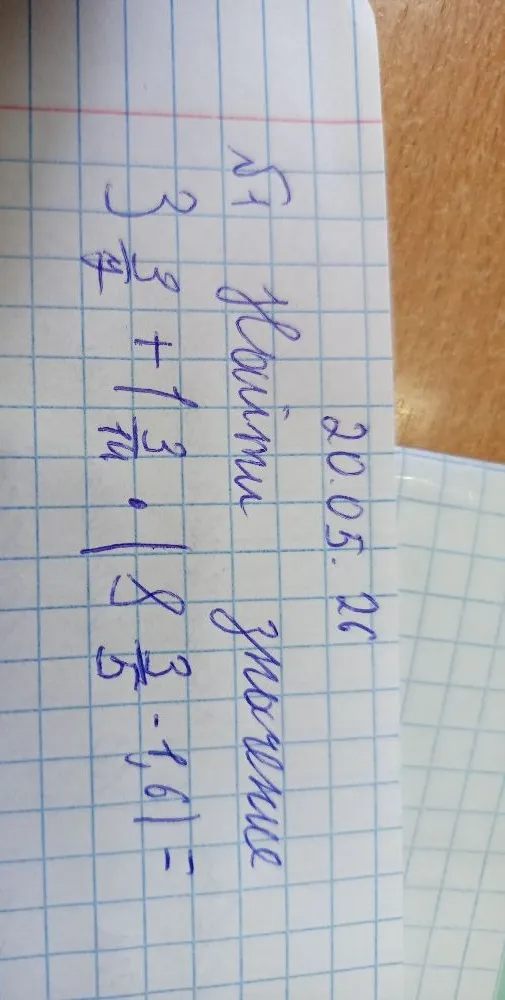 20.05.26
№1 Найти значение
3 3/7 + 1 3/14 · (8 3/5 - 1,6) =